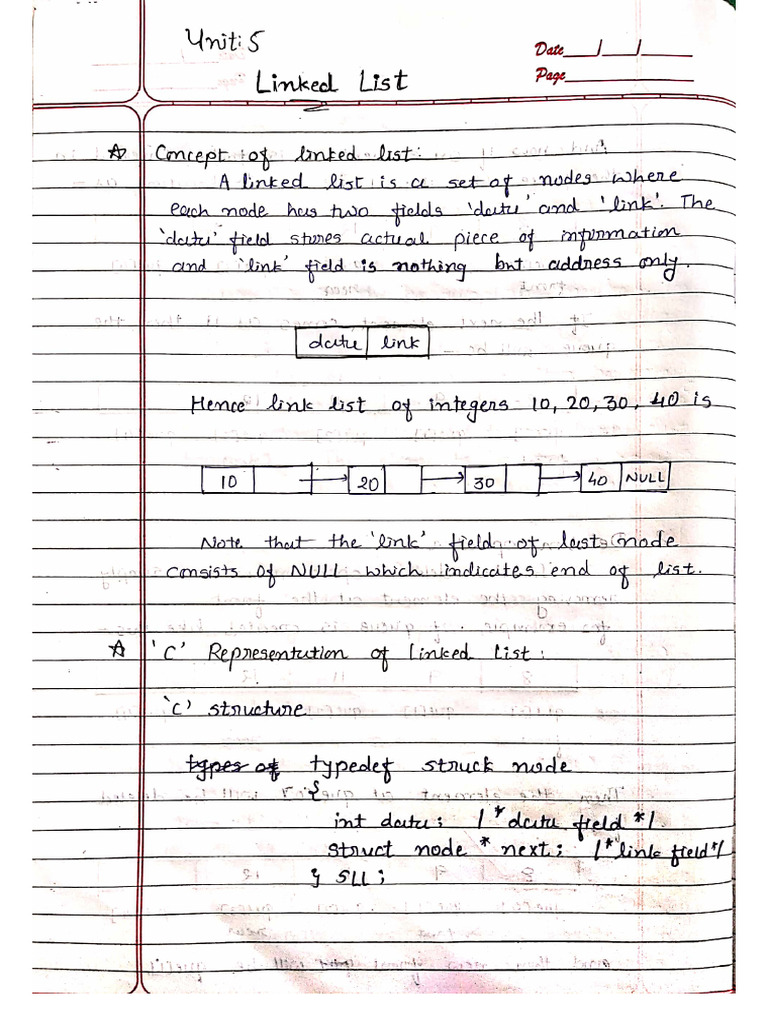 Unit: 5
Date__/__/____
Linked List
Page____________
☆ Concept of linked list:
A linked list is a set of nodes where
each node has two fields 'data' and 'link'. The
'data' field stores actual piece of information
and 'link' field is nothing but address only.
data link
Hence link list of integers 10, 20, 30, 40 is
10 → 20 → 30 → 40 NULL
Note that the 'link' field of last node
consists of NULL which indicates end of list.
☆ 'C' Representation of Linked List:
'C' structure
types of typedef struck node
{
int data; /* data field */
struct node * next; /* link field */
} SLL;